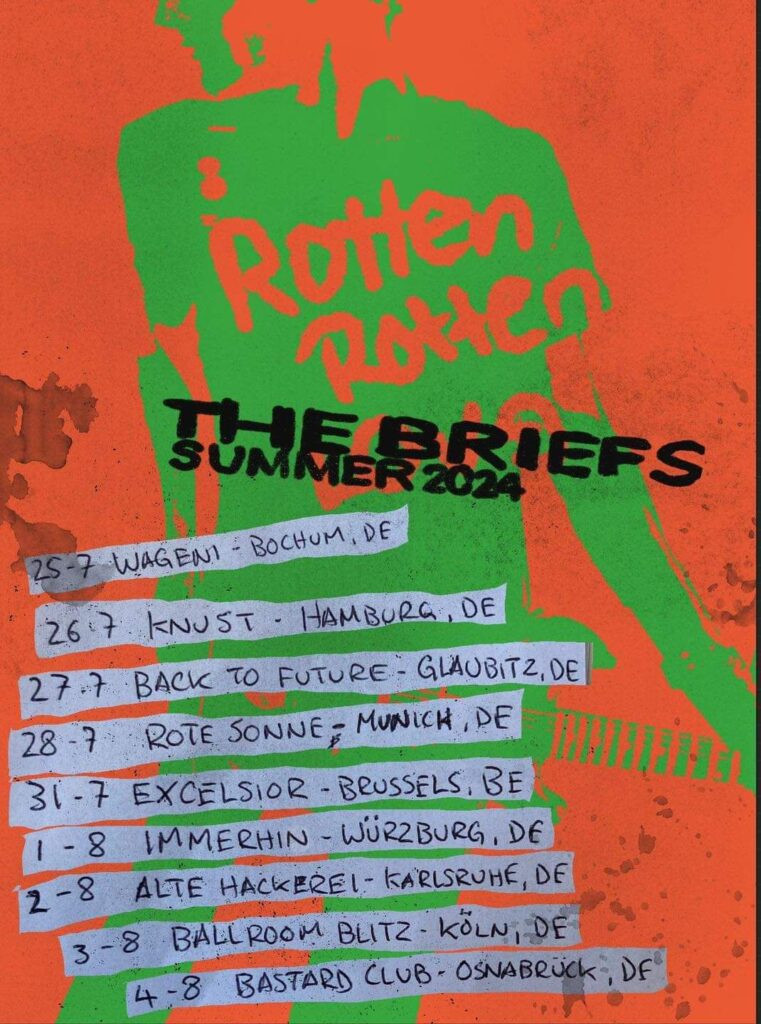 Rotten
Rotten
THE BRIEFS
SUMMER 2024
25-7 WAGENI - BOCHUM, DE
26.7 KNUST - HAMBURG, DE
27.7 BACK TO FUTURE - GLAUBITZ, DE
28-7 ROTE SONNE - MUNICH, DE
31-7 EXCELSIOR - BRUSSELS, BE
1-8 IMMERHIN - WÜRZBURG, DE
2-8 ALTE HACKEREI - KARLSRUHE, DE
3-8 BALLROOM BLITZ - KÖLN, DE
4-8 BASTARD CLUB - OSNABRÜCK, DE